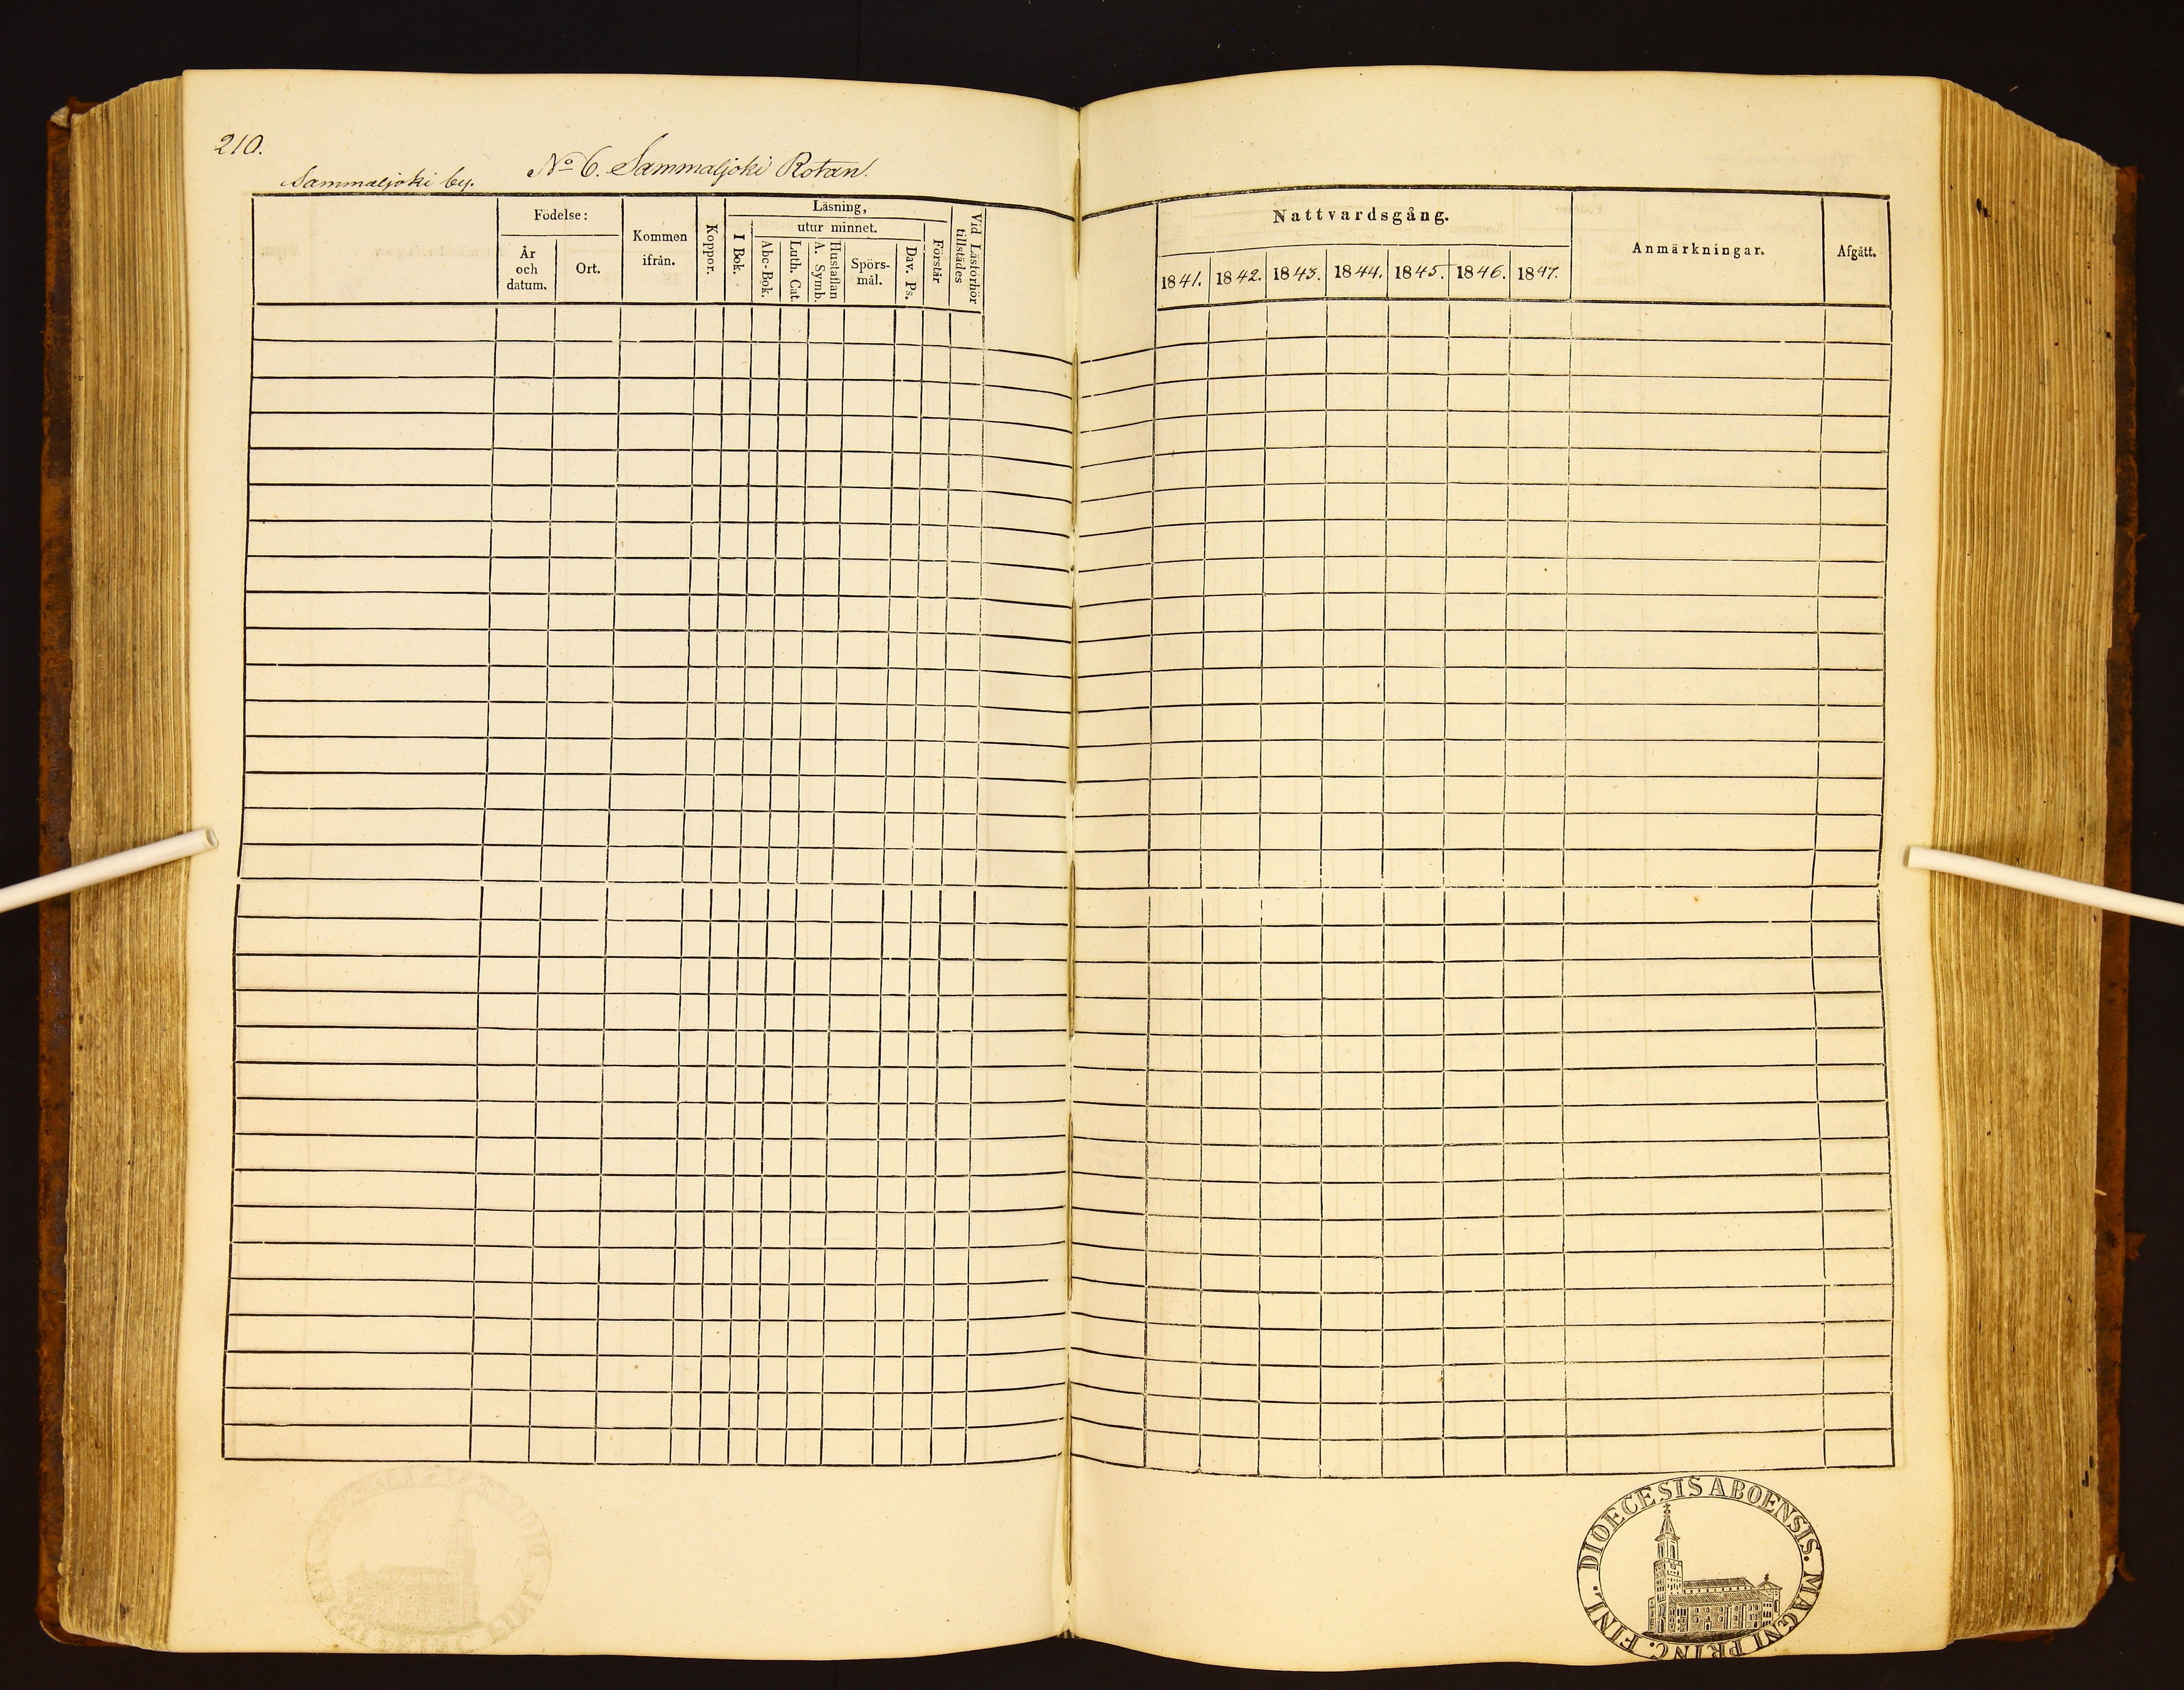 210.
Sammaljoki by.
No 6. Sammaljoki Rotan.
Födelse:
År
och
datum.
Ort.
Kommen
ifrån.
Koppor.
Läsning,
utur minnet.
I Bok.
Abc-Bok.
Luth. Cat.
Hustaflan
A. Symb.
Spörs-
mål.
Dav. Ps.
Förstår
Vid Läsförhör
tillstädes
Nattvardsgång.
1841. 1842. 1843. 1844. 1845. 1846. 1847.
Anmärkningar.
Afgått.
DIOECESIS ABOENSIS. MAGNI PRINC. FINL.